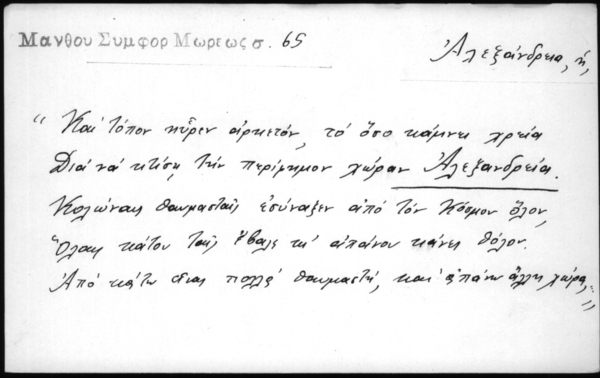 Μανθου Συμφορ Μωρεως σ. 65
Ἀλεξάνδρεια, ἡ,
"Καὶ τόπον ηὗρεν ἀρκετόν, τὸ ὅσο κάμνει χρεία
Διὰ νὰ κτίση τὴν περίφημον χώραν Ἀλεξανδρεία.
Κολώναις θαυμασταῖς ἐσύναξεν ἀπὸ τὸν κόσμον ὅλον,
Ὅλαις κάτου ταῖς ἔβαλε κι' ἀπάνου κάνει θόλον.
Ἀπὸ κάτω εἶναι πολλὰ θαυμαστή, καὶ ἀπάνω ἄλλη χώρα,"